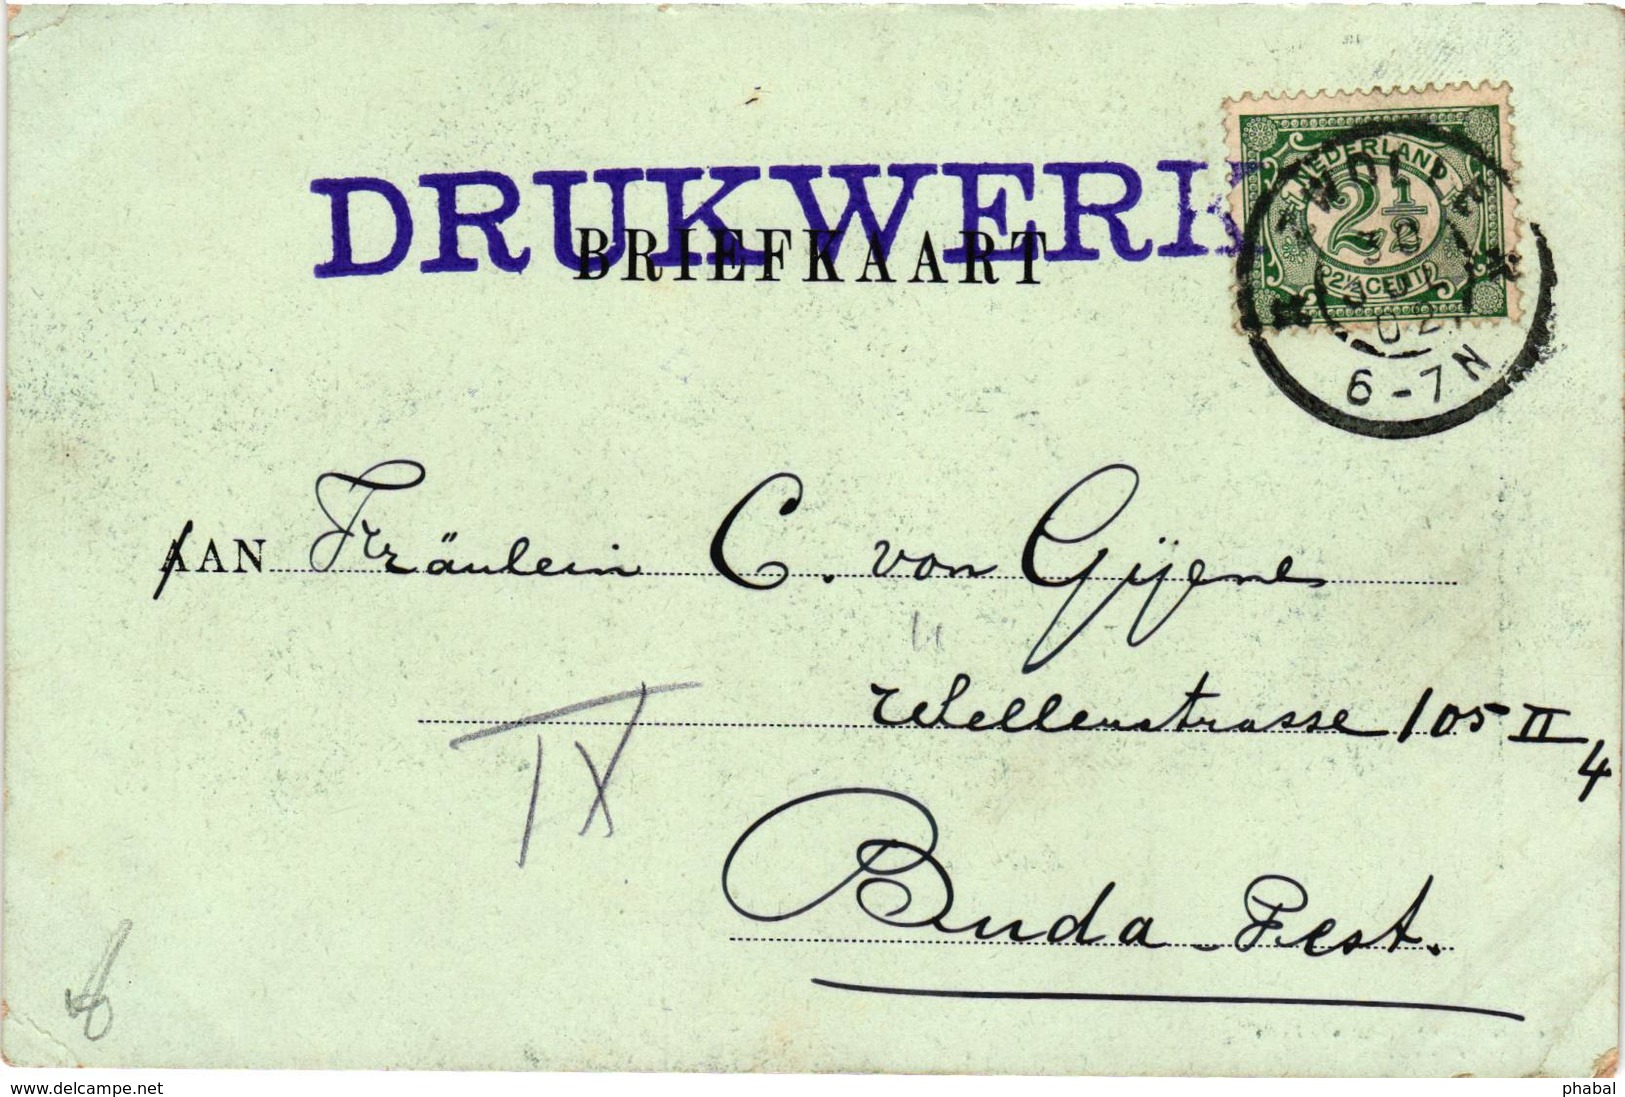 DRUKWERK
BRIEFKAART
NEDERLAND
2 1/2
2½ CENT
ZWOLLE
30
02
6-7N
AAN Fräulein C. von Gijene
Wellenstrasse 105 II
4
IX
Buda-Pest.
www.delcampe.net
phabal